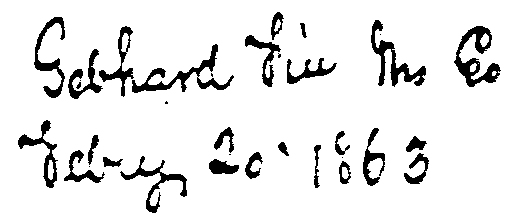 Gebhard Fire Ins Co
Febry 20 1863